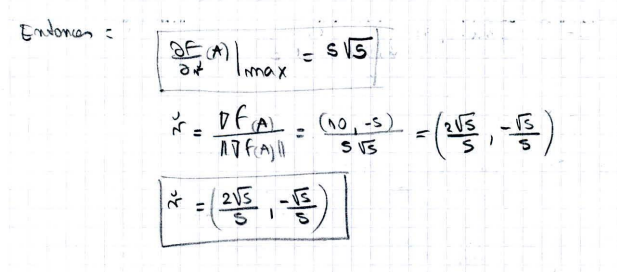 Entonces =
∂F/∂ř (A) |max = 5√5
ř = ∇f(A) / ||∇f(A)|| = (10, -5) / 5√5 = (2√5/5, -√5/5)
ř = (2√5/5, -√5/5)